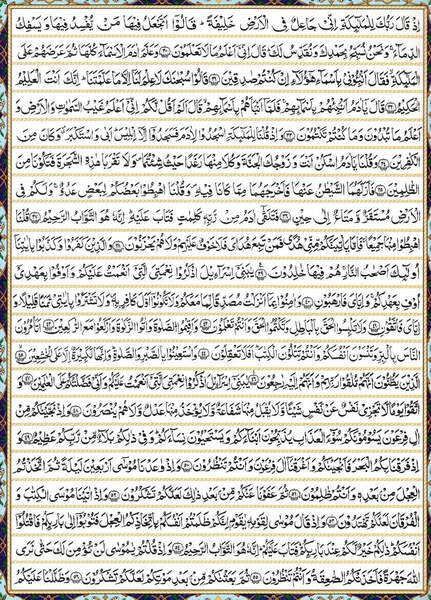 اِذْ قَالَ رَبُّكَ لِلْمَلٰٓئِكَةِ اِنِّى جَاعِلٌ فِى الْاَرْضِ خَلِيفَةً قَالُٓوا اَتَجْعَلُ فِيهَا مَنْ يُفْسِدُ فِيهَا وَيَسْفِكُ
الدِّمَٓاءَ وَنَحْنُ نُسَبِّحُ بِحَمْدِكَ وَنُقَدِّسُ لَكَ قَالَ اِنِّٓى اَعْلَمُ مَا لَا تَعْلَمُونَ ﴿٣٠﴾ وَعَلَّمَ اٰدَمَ الْاَسْمَٓاءَ كُلَّهَا ثُمَّ عَرَضَهُمْ عَلَى
الْمَلٰٓئِكَةِ فَقَالَ اَنْبِئُونِى بِاَسْمَٓاءِ هٰٓؤُلَٓاءِ اِنْ كُنْتُمْ صٰدِقِينَ ﴿٣١﴾ قَالُوا سُبْحٰنَكَ لَا عِلْمَ لَنَٓا اِلَّا مَا عَلَّمْتَنَا اِنَّكَ اَنْتَ الْعَلِيمُ
الْحَكِيمُ ﴿٣٢﴾ قَالَ يٰٓاٰدَمُ اَنْبِئْهُمْ بِاَسْمَٓائِهِمْ فَلَمَّٓا اَنْبَاَهُمْ بِاَسْمَٓائِهِمْ قَالَ اَلَمْ اَقُلْ لَكُمْ اِنِّٓى اَعْلَمُ غَيْبَ السَّمٰوٰتِ وَالْاَرْضِ وَ
اَعْلَمُ مَا تُبْدُونَ وَمَا كُنْتُمْ تَكْتُمُونَ ﴿٣٣﴾ وَاِذْ قُلْنَا لِلْمَلٰٓئِكَةِ اسْجُدُوا لِاٰدَمَ فَسَجَدُٓوا اِلَّٓا اِبْلِيسَ اَبٰى وَاسْتَكْبَرَ وَكَانَ مِنَ
الْكٰفِرِينَ ﴿٣٤﴾ وَقُلْنَا يٰٓاٰدَمُ اسْكُنْ اَنْتَ وَزَوْجُكَ الْجَنَّةَ وَكُلَا مِنْهَا رَغَدًا حَيْثُ شِئْتُمَا وَلَا تَقْرَبَا هٰذِهِ الشَّجَرَةَ فَتَكُونَا مِنَ
الظّٰلِمِينَ ﴿٣٥﴾ فَاَزَلَّهُمَا الشَّيْطٰنُ عَنْهَا فَاَخْرَجَهُمَا مِمَّا كَانَا فِيهِ وَقُلْنَا اهْبِطُوا بَعْضُكُمْ لِبَعْضٍ عَدُوٌّ وَلَكُمْ فِى
الْاَرْضِ مُسْتَقَرٌّ وَمَتَاعٌ اِلٰى حِينٍ ﴿٣٦﴾ فَتَلَقّٰٓى اٰدَمُ مِنْ رَبِّهِ كَلِمٰتٍ فَتَابَ عَلَيْهِ اِنَّهُ هُوَ التَّوَّابُ الرَّحِيمُ ﴿٣٧﴾ قُلْنَا
اهْبِطُوا مِنْهَا جَمِيعًا فَاِمَّا يَاْتِيَنَّكُمْ مِنِّى هُدًى فَمَنْ تَبِعَ هُدَاىَ فَلَا خَوْفٌ عَلَيْهِمْ وَلَا هُمْ يَحْزَنُونَ ﴿٣٨﴾ وَالَّذِينَ كَفَرُوا وَكَذَّبُوا بِاٰيَاتِنَٓا
اُولٰٓئِكَ اَصْحٰبُ النَّارِ هُمْ فِيهَا خٰلِدُونَ ﴿٣٩﴾ يٰبَنِٓى اِسْرَٓائِيلَ اذْكُرُوا نِعْمَتِىَ الَّتِٓى اَنْعَمْتُ عَلَيْكُمْ وَاَوْفُوا بِعَهْدِٓى
اُوفِ بِعَهْدِكُمْ وَاِيَّاىَ فَارْهَبُونِ ﴿٤٠﴾ وَاٰمِنُوا بِمَٓا اَنْزَلْتُ مُصَدِّقًا لِمَا مَعَكُمْ وَلَا تَكُونُٓوا اَوَّلَ كَافِرٍ بِهِ وَلَا تَشْتَرُوا بِاٰيَاتِى ثَمَنًا قَلِيلًا وَ
اِيَّاىَ فَاتَّقُونِ ﴿٤١﴾ وَلَا تَلْبِسُوا الْحَقَّ بِالْبَاطِلِ وَتَكْتُمُوا الْحَقَّ وَاَنْتُمْ تَعْلَمُونَ ﴿٤٢﴾ وَاَقِيمُوا الصَّلٰوةَ وَاٰتُوا الزَّكٰوةَ وَارْكَعُوا مَعَ الرَّاكِعِينَ ﴿٤٣﴾ اَتَاْمُرُونَ
النَّاسَ بِالْبِرِّ وَتَنْسَوْنَ اَنْفُسَكُمْ وَاَنْتُمْ تَتْلُونَ الْكِتٰبَ اَفَلَا تَعْقِلُونَ ﴿٤٤﴾ وَاسْتَعِينُوا بِالصَّبْرِ وَالصَّلٰوةِ وَاِنَّهَا لَكَبِيرَةٌ اِلَّا عَلَى الْخٰشِعِينَ ﴿٤٥﴾
الَّذِينَ يَظُنُّونَ اَنَّهُمْ مُلٰقُوا رَبِّهِمْ وَاَنَّهُمْ اِلَيْهِ رَاجِعُونَ ﴿٤٦﴾ يٰبَنِٓى اِسْرَٓائِيلَ اذْكُرُوا نِعْمَتِىَ الَّتِٓى اَنْعَمْتُ عَلَيْكُمْ وَاَنِّى فَضَّلْتُكُمْ عَلَى الْعٰلَمِينَ ﴿٤٧﴾
وَاتَّقُوا يَوْمًا لَا تَجْزِى نَفْسٌ عَنْ نَفْسٍ شَيْئًا وَلَا يُقْبَلُ مِنْهَا شَفَاعَةٌ وَلَا يُؤْخَذُ مِنْهَا عَدْلٌ وَلَا هُمْ يُنْصَرُونَ ﴿٤٨﴾ وَاِذْ نَجَّيْنٰكُمْ مِنْ
اٰلِ فِرْعَوْنَ يَسُومُونَكُمْ سُٓوءَ الْعَذَابِ يُذَبِّحُونَ اَبْنَٓاءَكُمْ وَيَسْتَحْيُونَ نِسَٓاءَكُمْ وَفِى ذٰلِكُمْ بَلَٓاءٌ مِنْ رَبِّكُمْ عَظِيمٌ ﴿٤٩﴾ وَ
اِذْ فَرَقْنَا بِكُمُ الْبَحْرَ فَاَنْجَيْنٰكُمْ وَاَغْرَقْنَٓا اٰلَ فِرْعَوْنَ وَاَنْتُمْ تَنْظُرُونَ ﴿٥٠﴾ وَاِذْ وٰعَدْنَا مُوسٰٓى اَرْبَعِينَ لَيْلَةً ثُمَّ اتَّخَذْتُمُ
الْعِجْلَ مِنْ بَعْدِهِ وَاَنْتُمْ ظٰلِمُونَ ﴿٥١﴾ ثُمَّ عَفَوْنَا عَنْكُمْ مِنْ بَعْدِ ذٰلِكَ لَعَلَّكُمْ تَشْكُرُونَ ﴿٥٢﴾ وَاِذْ اٰتَيْنَا مُوسَى الْكِتٰبَ وَ
الْفُرْقَانَ لَعَلَّكُمْ تَهْتَدُونَ ﴿٥٣﴾ وَاِذْ قَالَ مُوسٰى لِقَوْمِهِ يٰقَوْمِ اِنَّكُمْ ظَلَمْتُمْ اَنْفُسَكُمْ بِاتِّخَاذِكُمُ الْعِجْلَ فَتُوبُٓوا اِلٰى بَارِئِكُمْ فَاقْتُلُٓوا
اَنْفُسَكُمْ ذٰلِكُمْ خَيْرٌ لَكُمْ عِنْدَ بَارِئِكُمْ فَتَابَ عَلَيْكُمْ اِنَّهُ هُوَ التَّوَّابُ الرَّحِيمُ ﴿٥٤﴾ وَاِذْ قُلْتُمْ يٰمُوسٰى لَنْ نُؤْمِنَ لَكَ حَتّٰى نَرَى
اللّٰهَ جَهْرَةً فَاَخَذَتْكُمُ الصّٰعِقَةُ وَاَنْتُمْ تَنْظُرُونَ ﴿٥٥﴾ ثُمَّ بَعَثْنٰكُمْ مِنْ بَعْدِ مَوْتِكُمْ لَعَلَّكُمْ تَشْكُرُونَ ﴿٥٦﴾ وَظَلَّلْنَا عَلَيْكُمُ